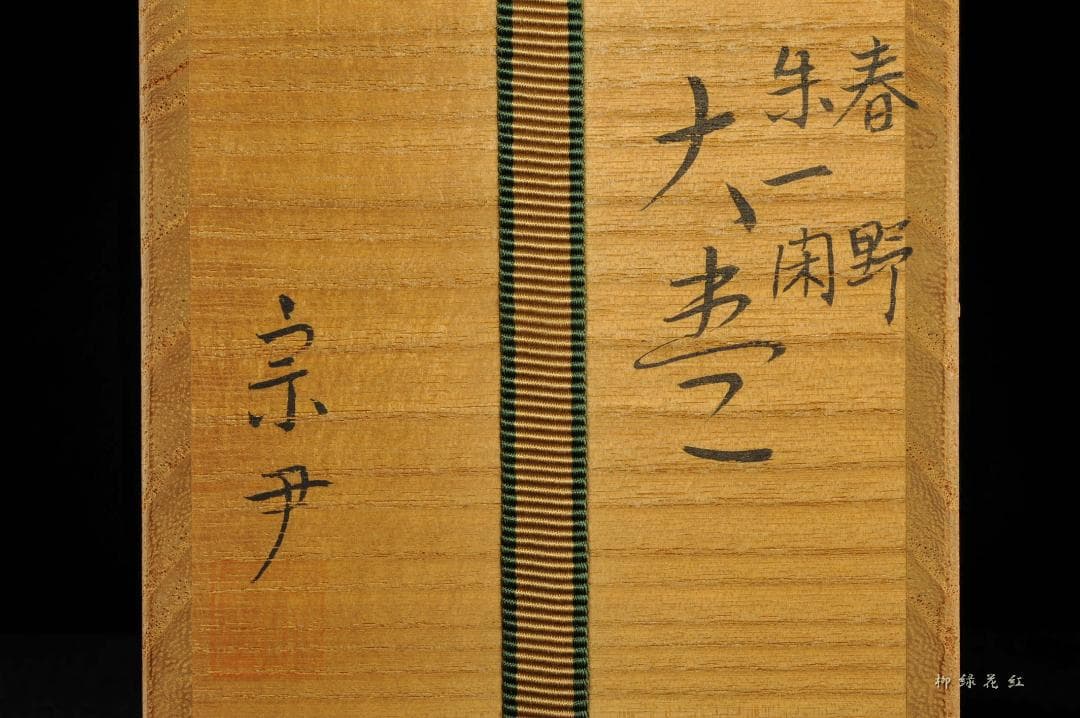 春野
朱一閑
大棗
宗尹
柳緑花紅